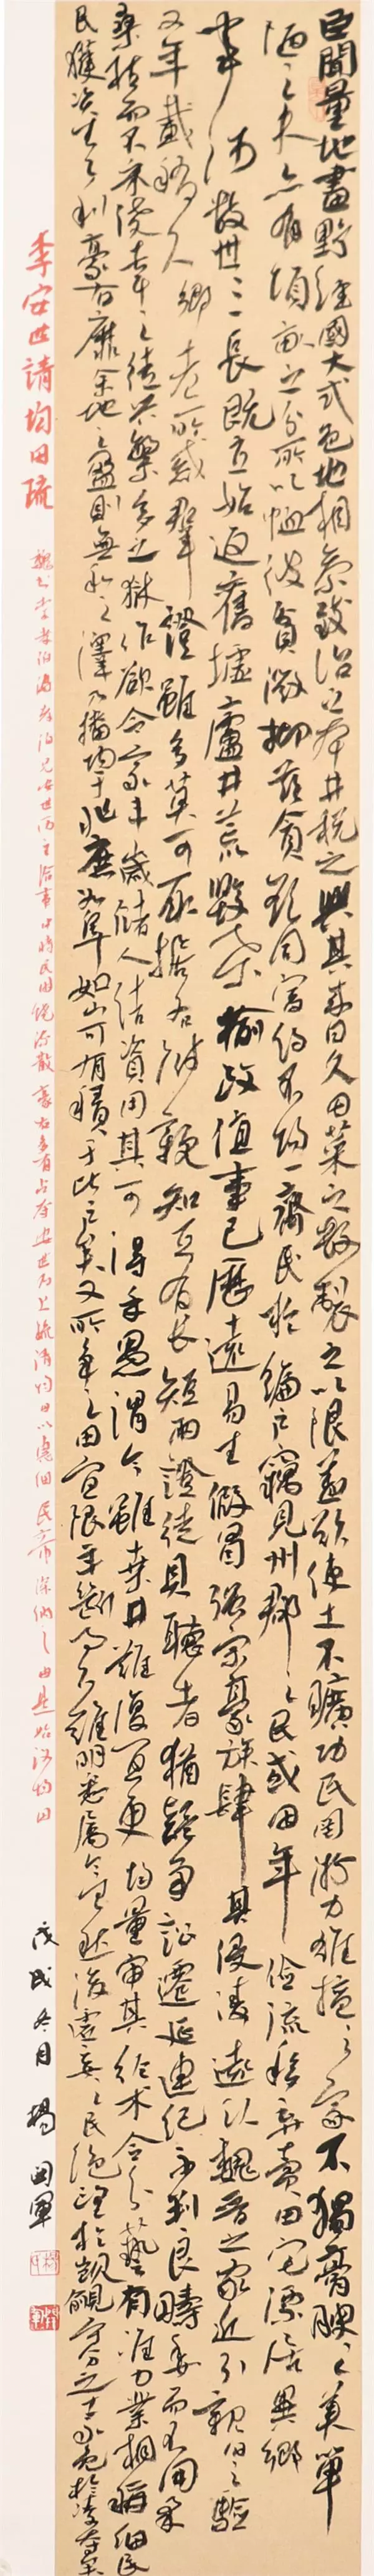 臣聞量地畫野經國大式邑地相參致治之本井稅之興其來日久田萊之數制之以限蓋欲使土不曠功民罔游力雄擅之家不獨膏腴之美單
陋之夫亦有頃畝之分所以恤彼貧微抑茲貪欲同富約之不均一齊民於編戶竊見州郡之民或因年儉流移棄賣田宅漂居異鄉
事涉數世三長既立始返舊墟廬井荒毀桑榆改植事已歷遠易生假冒強宗豪族肆其侵凌遠認魏晉之家近引親舊之驗
又年載稍久鄉老所惑群證雖多莫可取據各附親知互有長短兩證徒具聽者猶疑爭訟遷延連紀不判良疇委而不開柔
桑枯而不采僥幸之徒興繁多之獄作欲令家豐歲儲人給資用其可得乎愚謂今雖桑井難復宜更均量審其徑術令分藝有准力業相稱細民
民獲資生之利豪右靡余地之盈則無私之澤乃播均於兆庶如阜如山可有積於比戶矣又所爭之田宜限年斷事久難明悉屬今主然後虛妄之民絕望於覬覦守分之士永免於凌奪矣
李安世請均田疏
魏書李孝伯傳孝伯兄安世為主給事中時民困饑流散豪右多有占奪安世乃上疏請均田以寬細民帝深納之由是始議均田
戊戌冬月 楊國軍